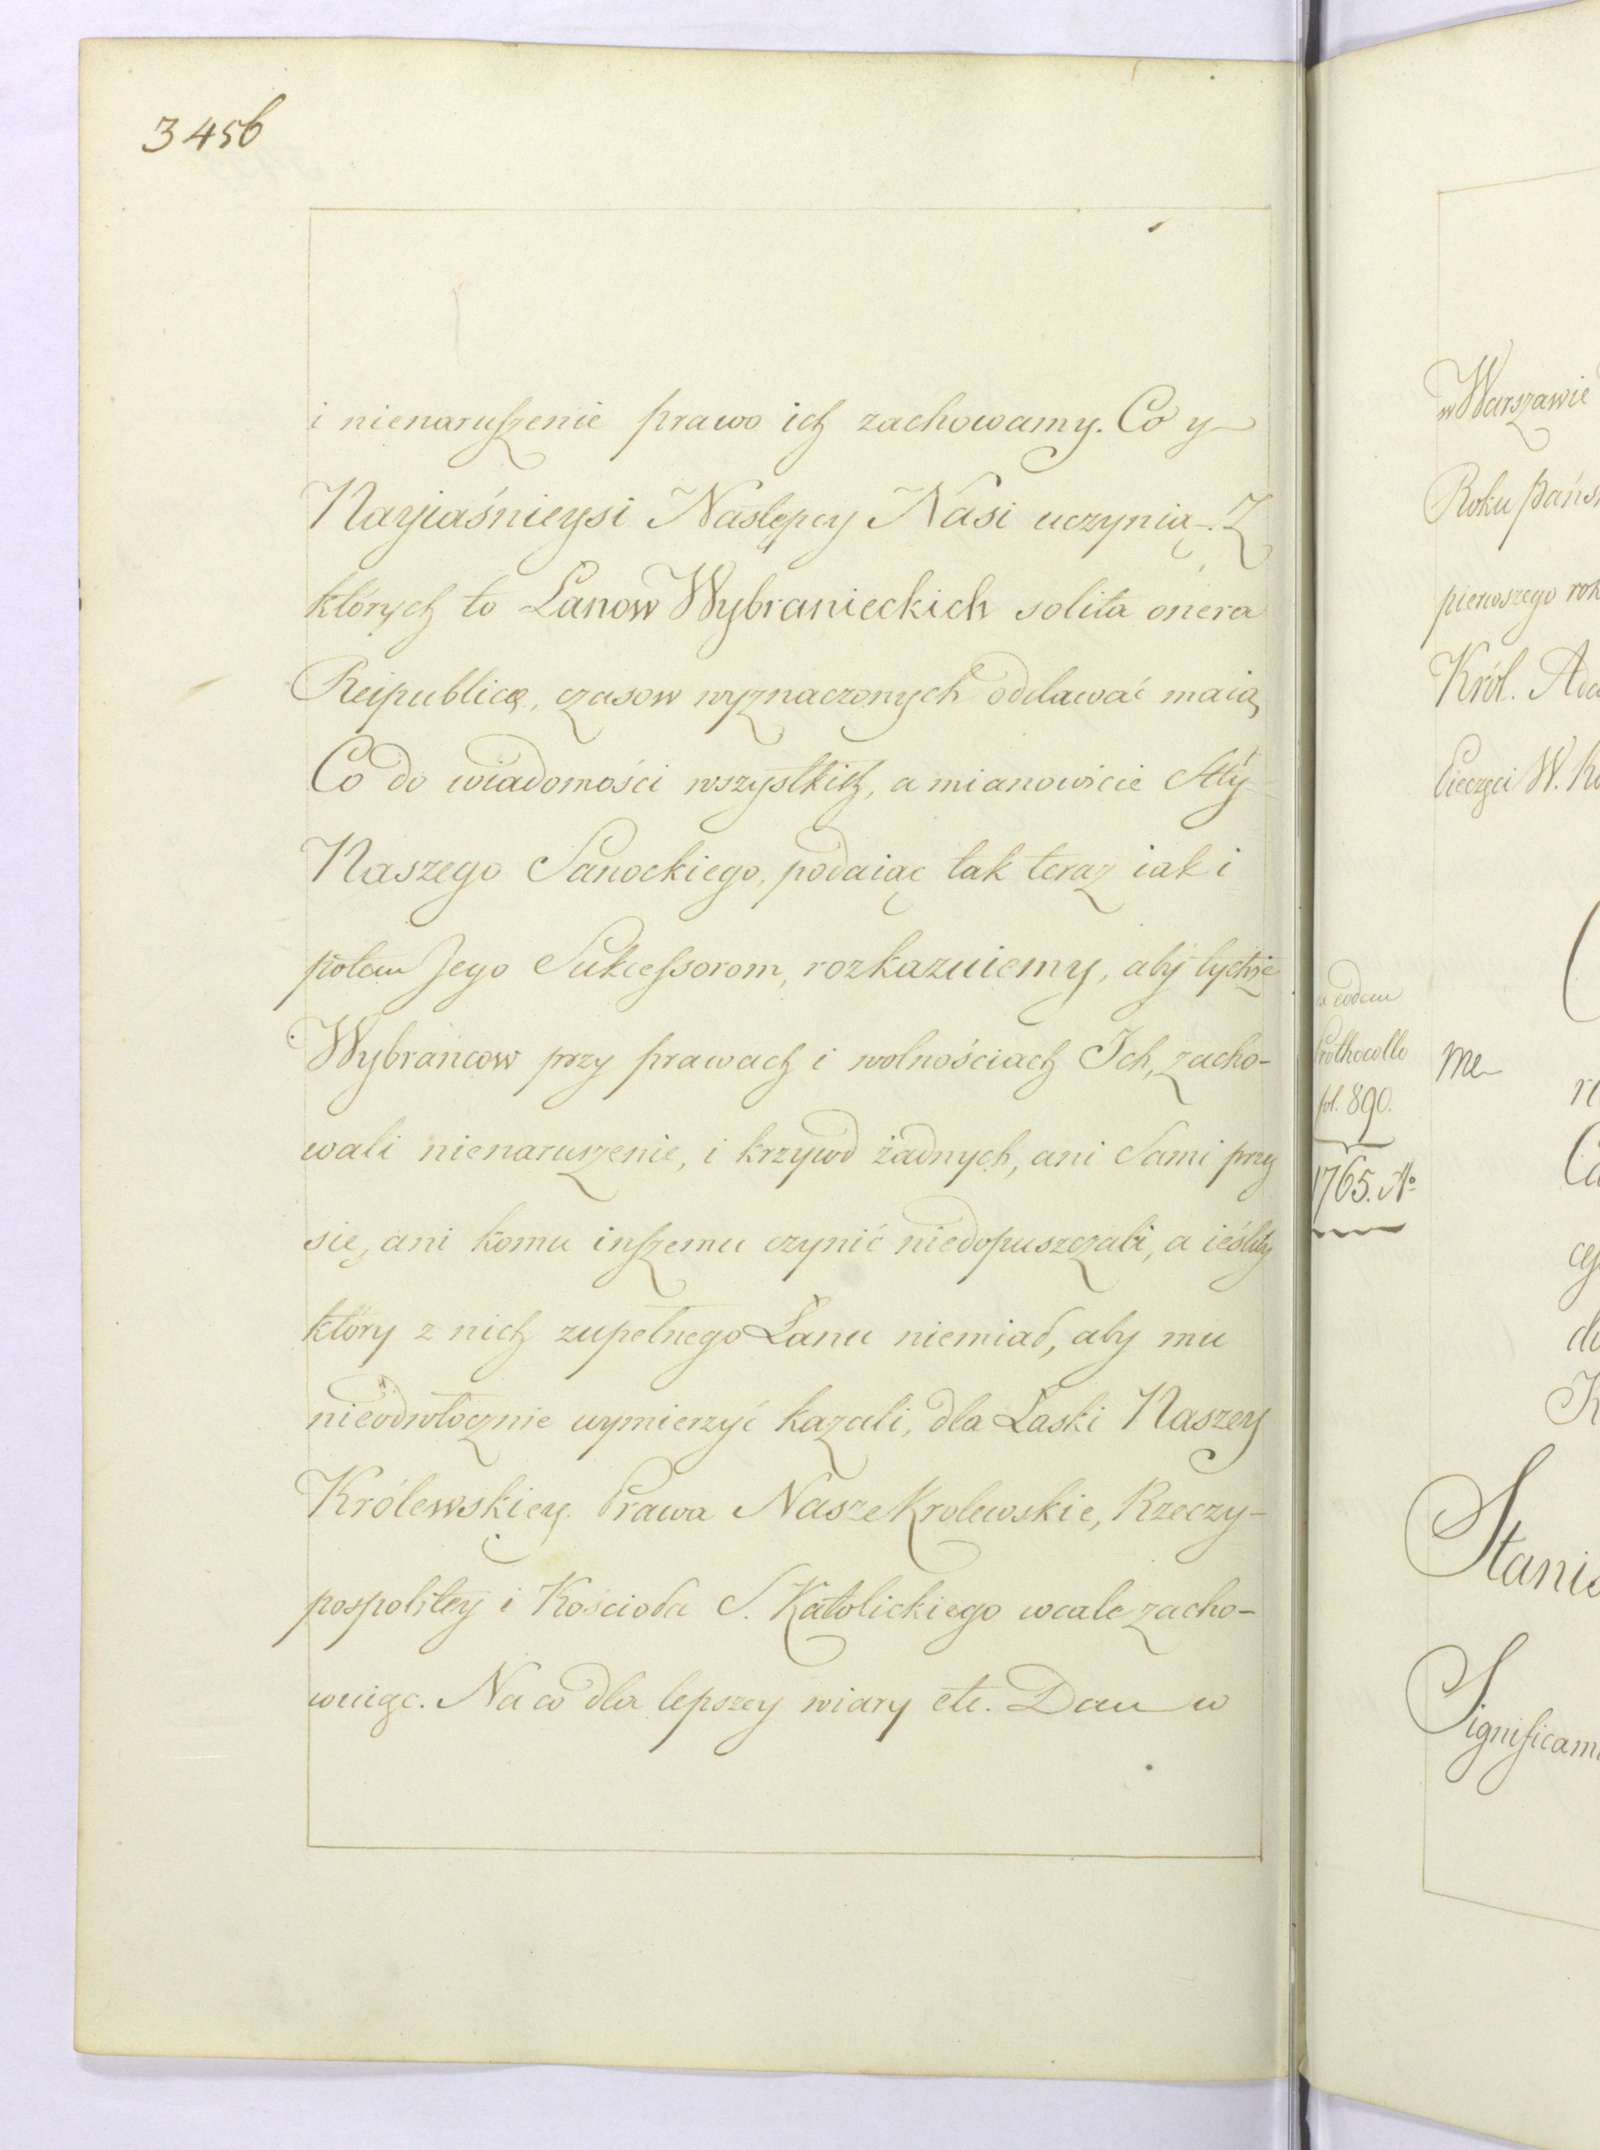 3456
i nienaruszenie prawo ich zachowamy. Co y
Nayiaśnieysi Następcy Nasi uczynią. Z
których to Łanow Wybranieckich solita onera
Reipublicę, czasow wyznaczonych oddawać maią,
Co do wiadomości wszystkich, a mianowicie Stty
Naszego Sanockiego, podaiąc tak teraz iak i
potem Jego Sukcessorom, rozkazuiemy, aby tychże
Wybrancow przy prawach i wolnościach Ich, zacho-
wali nienaruszenie, i krzywd żadnych, ani Sami przy
się, ani komu inszemu czynić niedopuszczali, a ieśliby
który z nich zupełnego Łanu niemiał, aby mu
nieodwłocznie wymierzyć kazali, dla Łaski Naszey
Królewskiey. Prawa Nasze Krolewskie, Rzeczy-
pospolitey i Kościoła S. Katolickiego wcale zacho-
wuiąc. Na co dla lepszey wiary etc. Dan w
w Warszawie
Roku Pańs
pierwszego rok
Król.
Pieczęci W. Ko
eodem
Prothocollo
fol. 890.
1765. Ao
me
Stanis
Significam